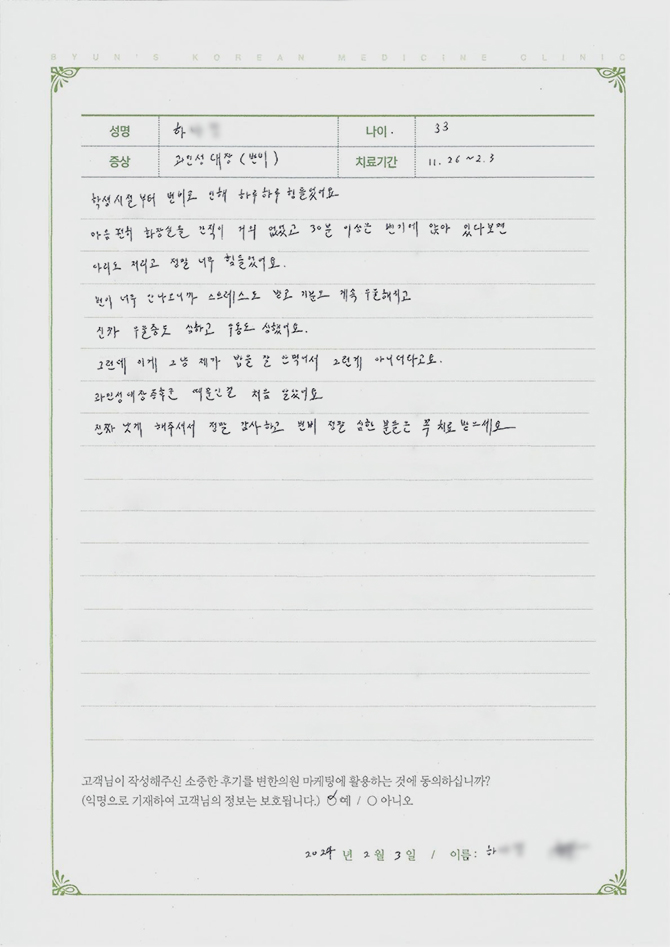 BYUN'S KOREAN MEDICINE CLINIC
성명 하 나이 33
증상 과민성 대장 (변비) 치료기간 11. 26 ~ 2. 3
학생시절부터 변비로 인해 하루하루 힘들었어요
마음편히 화장실을 간적이 거의 없었고 30분 이상은 변기에 앉아 있다보면
다리도 저리고 정말 너무 힘들었어요.
변이 너무 안나오니까 스트레스도 받고 기분도 계속 우울해지고
진짜 우울증도 심하고 우울도 심했어요.
그런데 이게 그냥 제가 밥을 잘 안먹어서 그런게 아니더라고요.
과민성대장증후군 때문인걸 처음 알았어요
진짜 낫게 해주셔서 정말 감사하고 변비 정말 심한 분들은 꼭 치료 받으세요
고객님이 작성해주신 소중한 후기를 변한의원 마케팅에 활용하는 것에 동의하십니까?
(익명으로 기재하여 고객님의 정보는 보호됩니다.) 예 / 아니오
2024 년 2 월 3 일 / 이름: 하